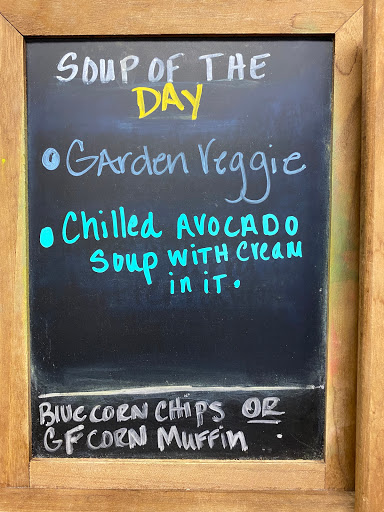 SOUP OF THE
DAY
• GArden Veggie
• Chilled AVOCADO
Soup WITH Cream
in iT.
BlUE CORN CHiPS OR
GF CORN MuffiN